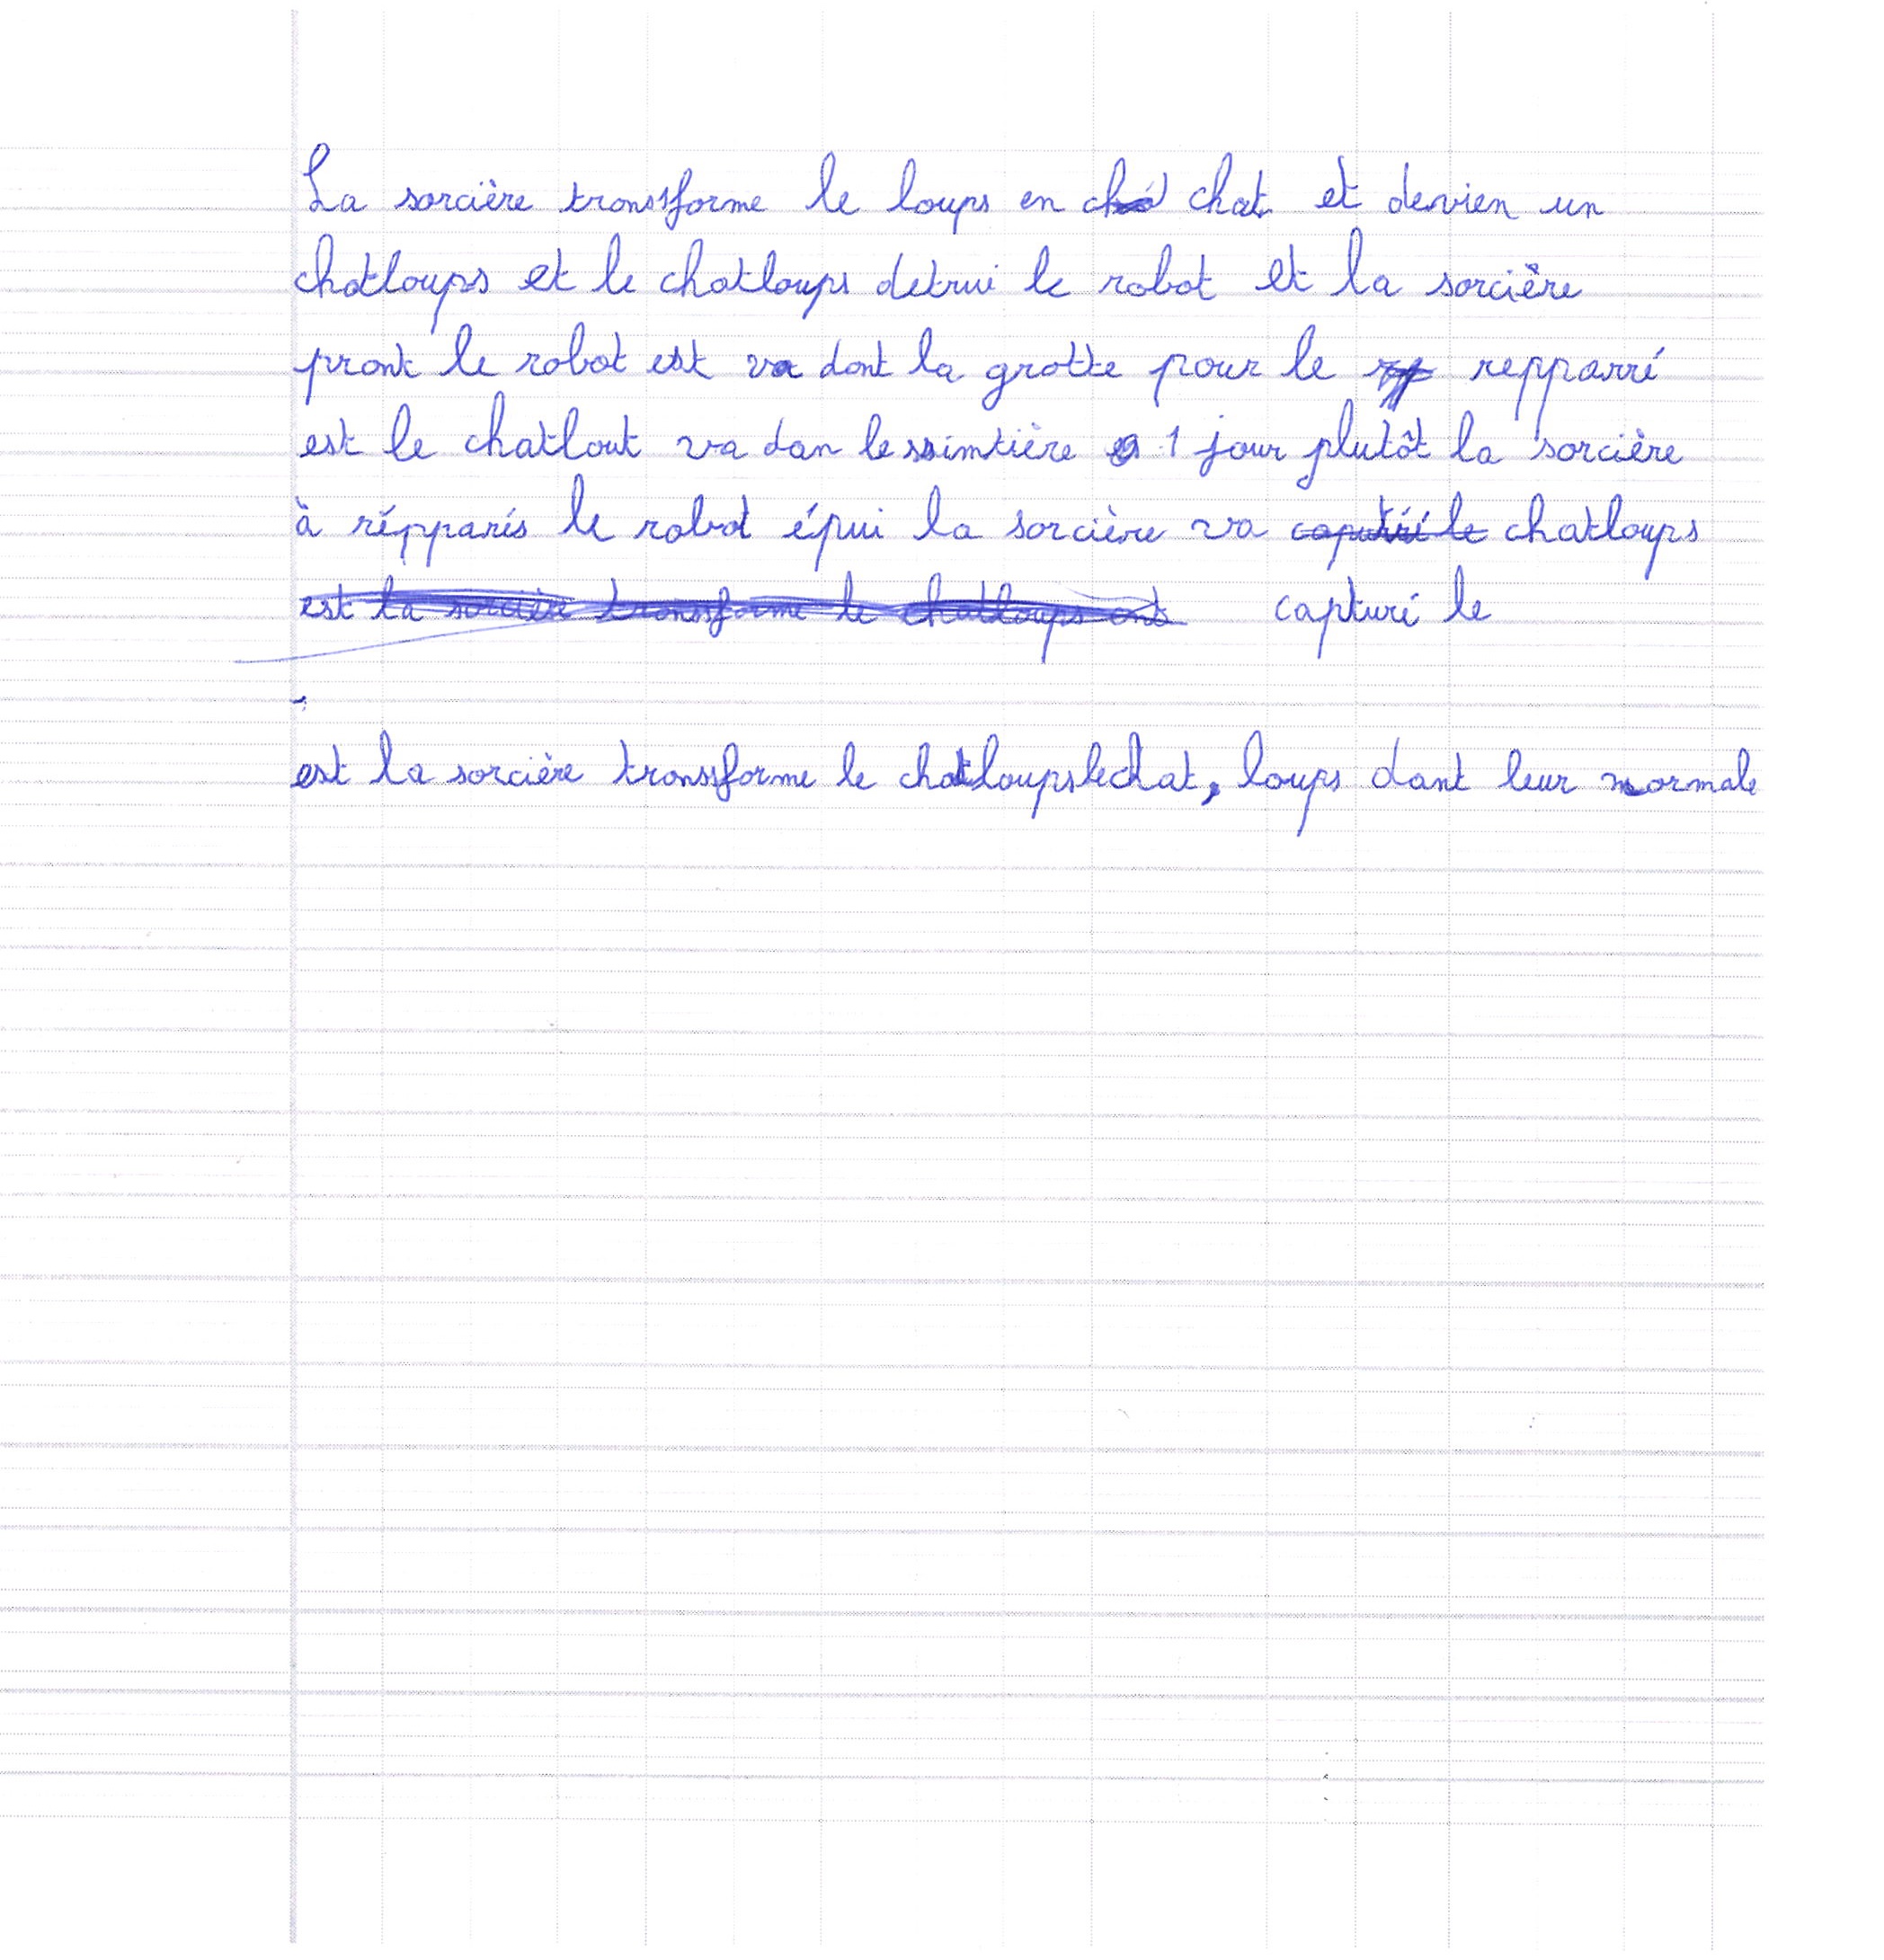 La sorcière transsforme le loups en chat et devien un
chatloups et le chatloups detrui le robot et la sorcière
pront le robot est va dont la grotte pour le repparré
est le chatlout va dan le ssimtière 1 jour plutôt la sorcière
à répparés le robot épui la sorcière va chatloups
capturé le
est la sorcière transsforme le chatloups le chat, loups dant leur normale